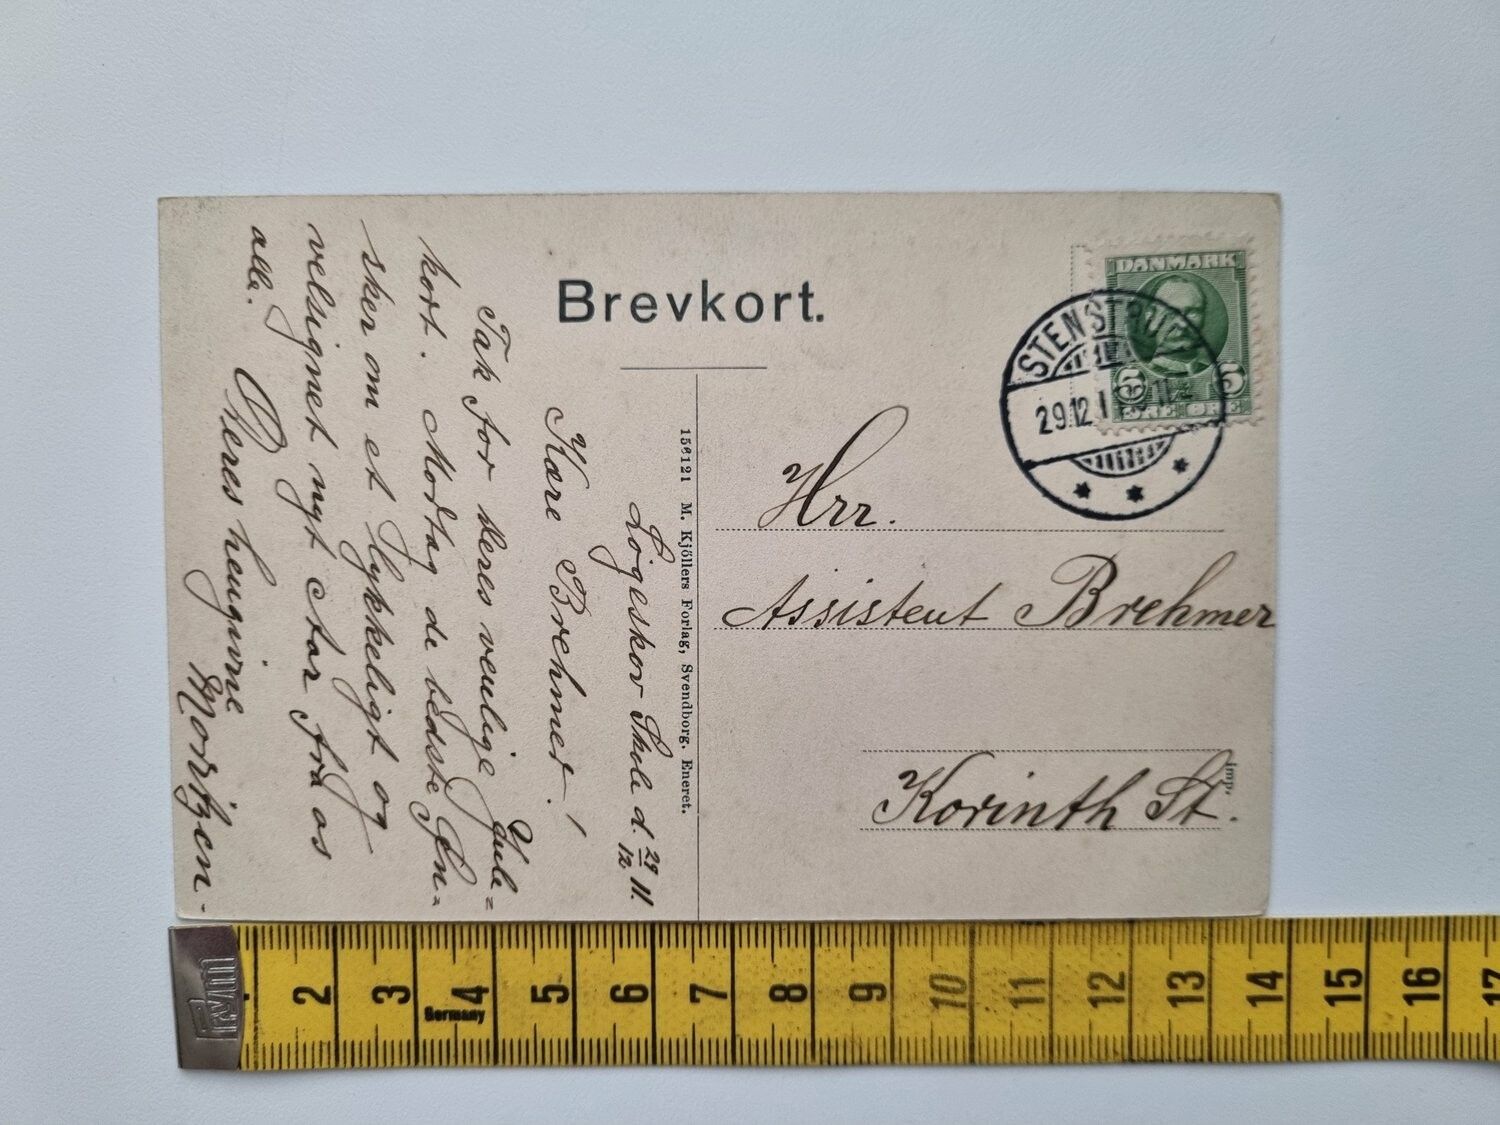 Brevkort.
DANMARK
5 5
ØRE ØRE
STENSTRUP
29.12.11
Hrr.
Assistent Brehmer
Korinth St.
Imp.
156121 M. Kjöllers Forlag, Svendborg. Eneret.
Løgeskov Skole d. 29/12 11.
Kære Brehmer!
Tak for Deres venlige Jule=
kort. Modtag de bedste Øn=
sker om et lykkeligt og
velsignet nyt Aar fra os
alle.
Deres hengivne
Mortgen.
PWM
Germany
2 3 4 5 6 7 8 9 10 11 12 13 14 15 16 17